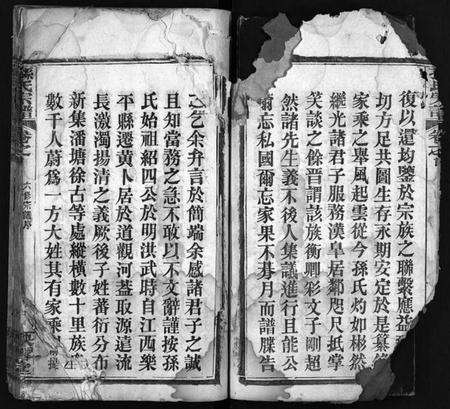 復以還均鑒於宗族之聯繫應益
切方足共圖生存永期安定於是纂修
家乘之舉風起雲從今孫氏灼如彬然
繼光諸君子服務漢皐居鄰咫尺抵掌
笑談之餘晋謂該族衡卿彩文子剛超
然諸先生義不後人集議進行且能公
爾忘私國爾忘家果不朞月而譜牒告
之乞余弁言於簡端余感諸君子之誠
且知當務之急不敢以不文辭謹按孫
氏始祖紹四公於明洪武時自江西樂
平縣遷黃卜居於道觀河蓋取源遠流
長激濁揚清之義厥後子姓蕃衍分布
新集潘塘徐古等處縱橫數十里族
數千人蔚爲一方大姓其有家乘
孫氏宗譜
卷之
六修宗譜序